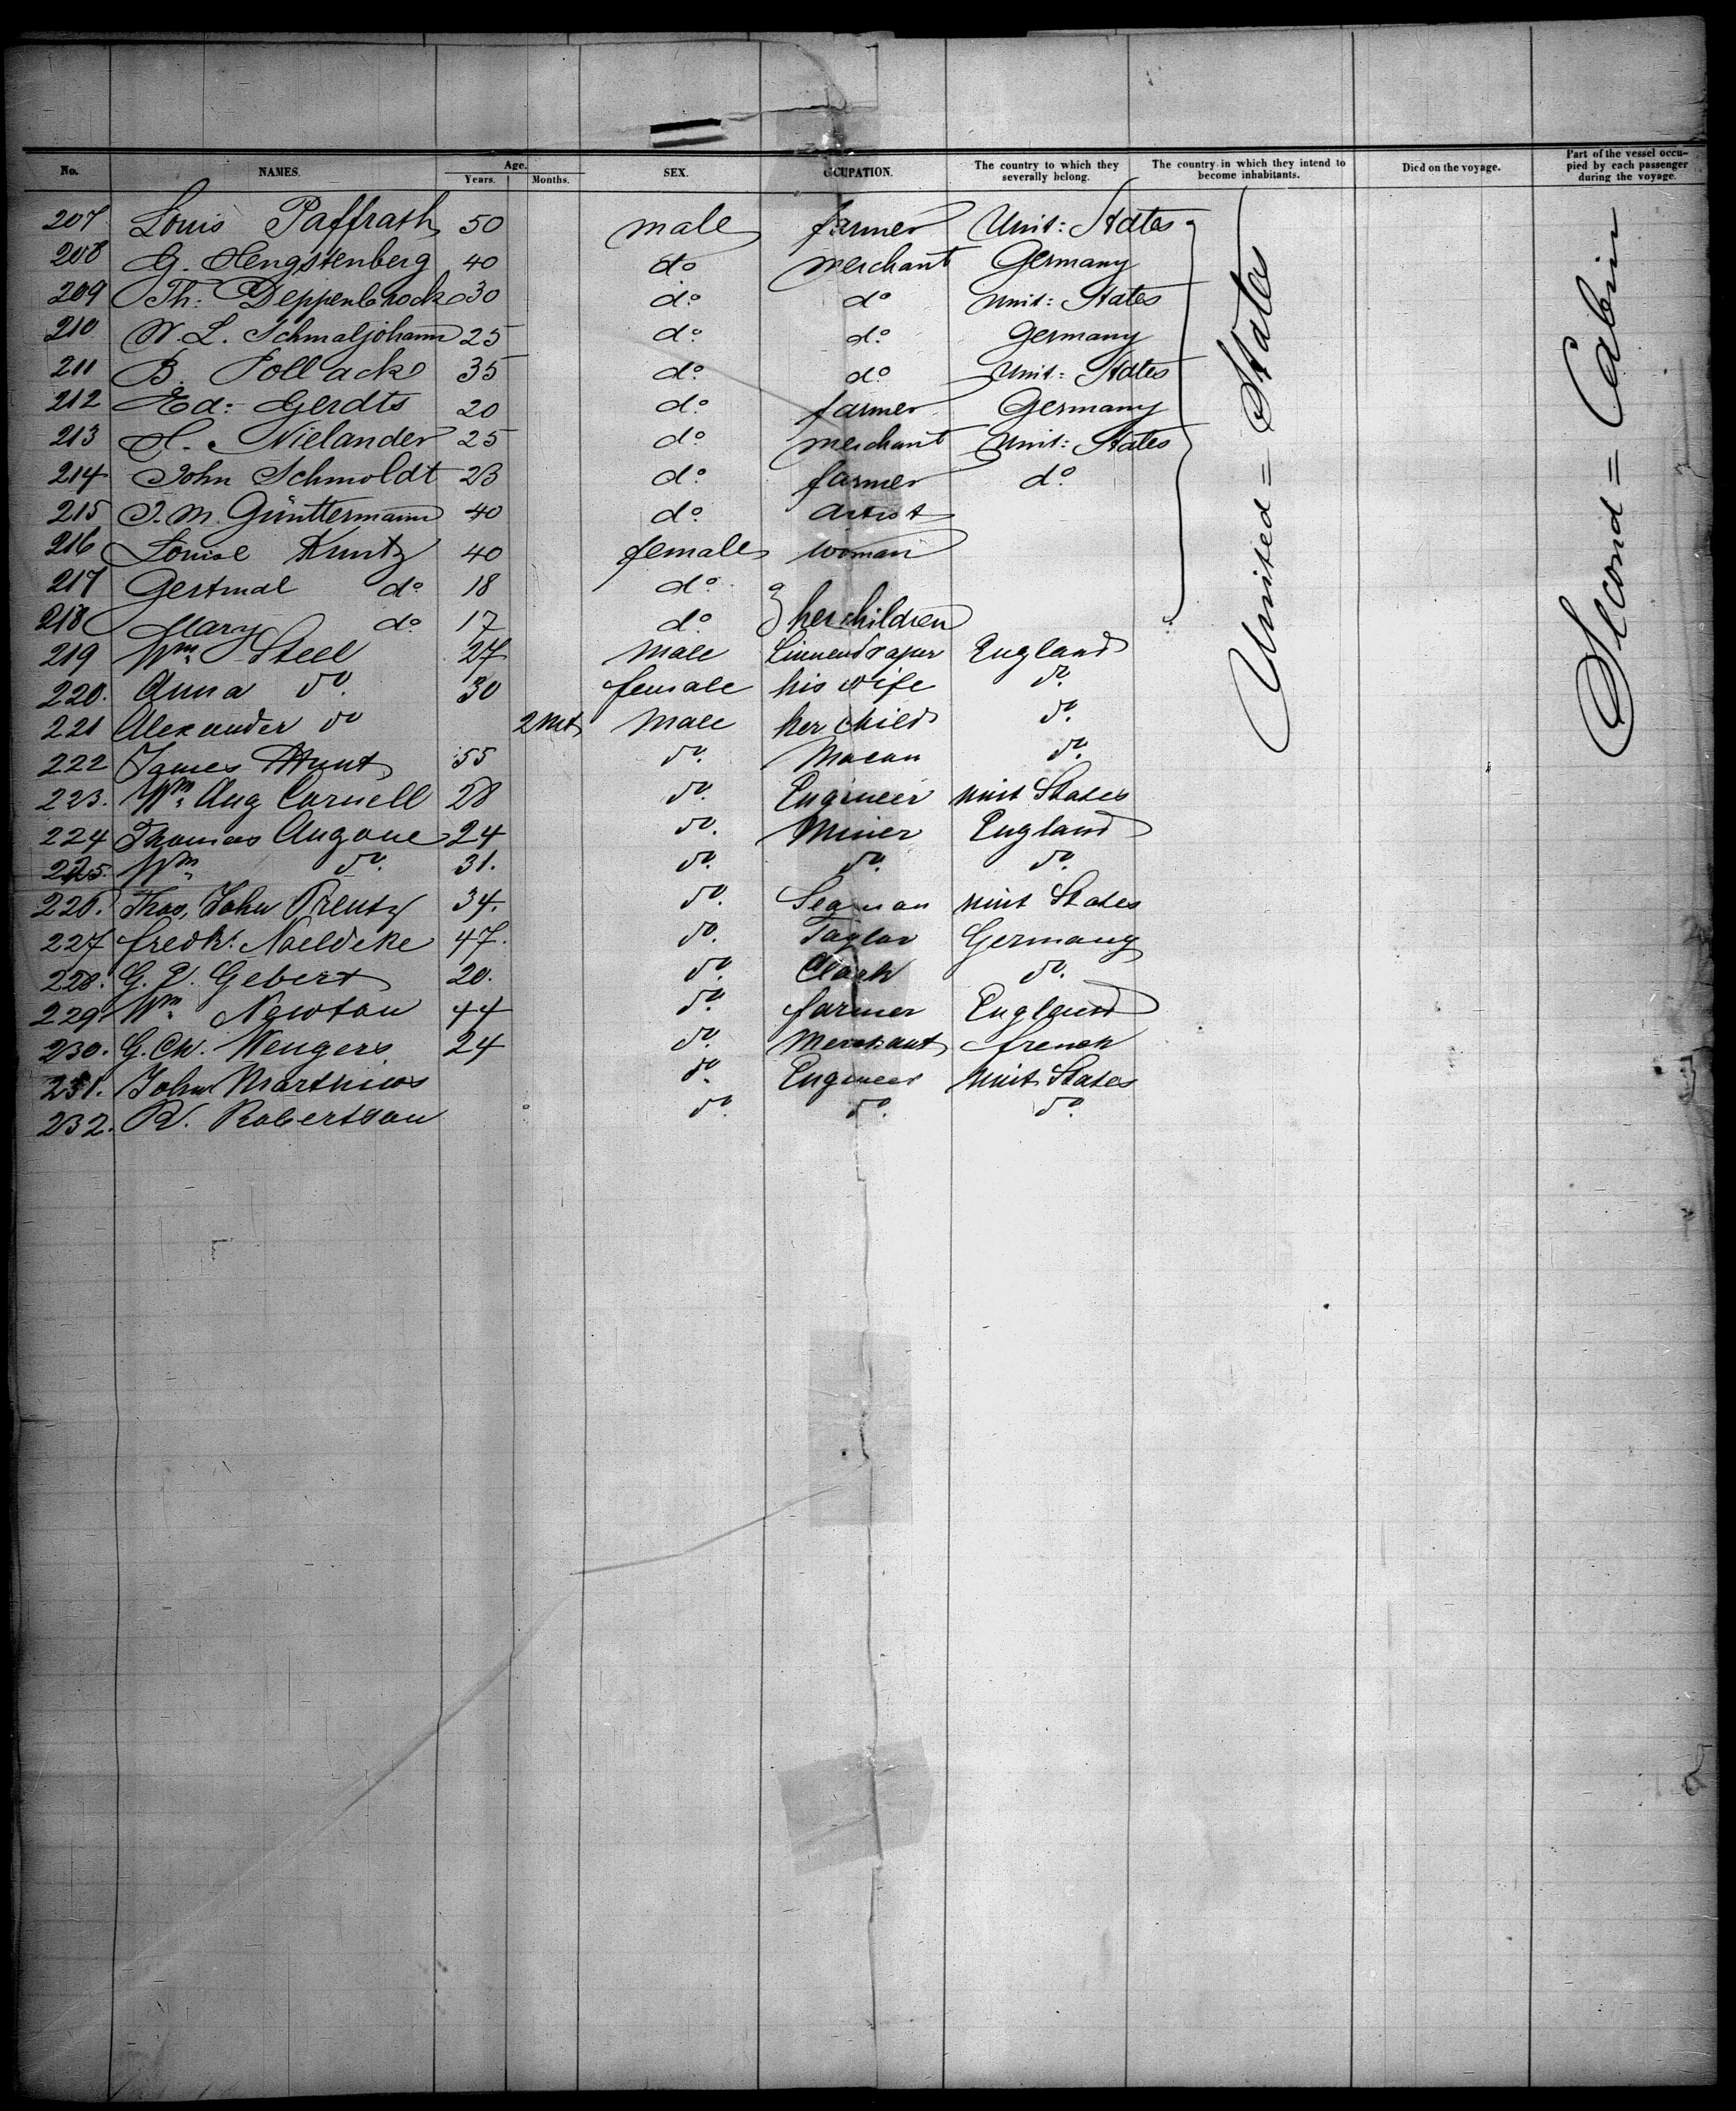 No. NAMES. Age. Years. Months. SEX. OCCUPATION. The country to which they severally belong. The country in which they intend to become inhabitants. Died on the voyage. Part of the vessel occupied by each passenger during the voyage.
207 Louis Paffrath 50 male farmer Unit: States
208 G. Hengstenberg 40 do merchant Germany
209 Th: Deppenbrock 30 do do Unit: States
210 W. L. Schmaljohann 25 do do Germany
211 B. Pollack 35 do do Unit: States
212 Ed: Gerdts 20 do farmer Germany
213 H. Nielander 25 do merchant Unit: States
214 John Schmoldt 23 do farmer do
215 J. M. Günttermann 40 do Artist
216 Louise Kuntz 40 female woman
217 Gertrud do 18 do
218 Mary do 17 do her children
219 Wm Steel 27 Male Linnendraper England
220. Anna do. 30 female his wife do.
221 Alexander do 2 Mt Male her child do.
222 James Hunt 55 do. Mason do.
223. Wm. Aug Cornell 28 do. Engineer unit States
224 Thomas Angove 24 do. Miner England
225. Wm. do. 31. do. do. do.
226. Thos. John Prentz 34. do. Seaman unit States
227 fredk. Noeldeke 47. do. Taylor Germany
228. G. P. Gebert 20. do. Clark do.
229. Wm. Newton 44 do. farmer England
230. G. Ch. Wengers 24 do. Merchant french
231. John Marthiws do. Engineer Unit States
232. R. Robertson do. do. do.
United = States
Second = Cabin